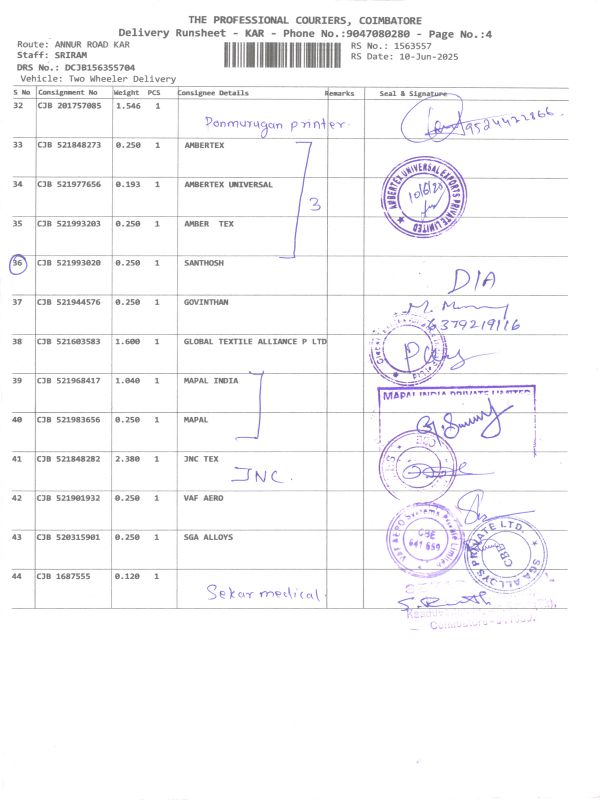 THE PROFESSIONAL COURIERS, COIMBATORE
Delivery Runsheet - KAR - Phone No.:9047080280 - Page No.:4
Route: ANNUR ROAD KAR RS No.: 1563557
Staff: SRIRAM RS Date: 10-Jun-2025
DRS No.: DCJB156355704
Vehicle: Two Wheeler Delivery
S No Consignment No Weight PCS Consignee Details Remarks Seal & Signature
32 CJB 201757085 1.546 1
Ponmurugan printer. 9524422866
33 CJB 521848273 0.250 1 AMBERTEX
AMBERTEX UNIVERSAL EXPORTS PRIVATE LIMITED
34 CJB 521977656 0.193 1 AMBERTEX UNIVERSAL
3
35 CJB 521993203 0.250 1 AMBER TEX
36 CJB 521993020 0.250 1 SANTHOSH
D/A
37 CJB 521944576 0.250 1 GOVINTHAN
6379219116
38 CJB 521603583 1.600 1 GLOBAL TEXTILE ALLIANCE P LTD
39 CJB 521968417 1.040 1 MAPAL INDIA
MAPAL INDIA PRIVATE LIMITED
40 CJB 521983656 0.250 1 MAPAL
41 CJB 521848282 2.380 1 JNC TEX
JNC.
42 CJB 521901932 0.250 1 VAF AERO
VAF AERO Systems Private Limited
CBE
641 659
43 CJB 520315901 0.250 1 SGA ALLOYS
SGA ALLOYS PRIVATE LTD.
CBE
44 CJB 1687555 0.120 1
Sekar medical.